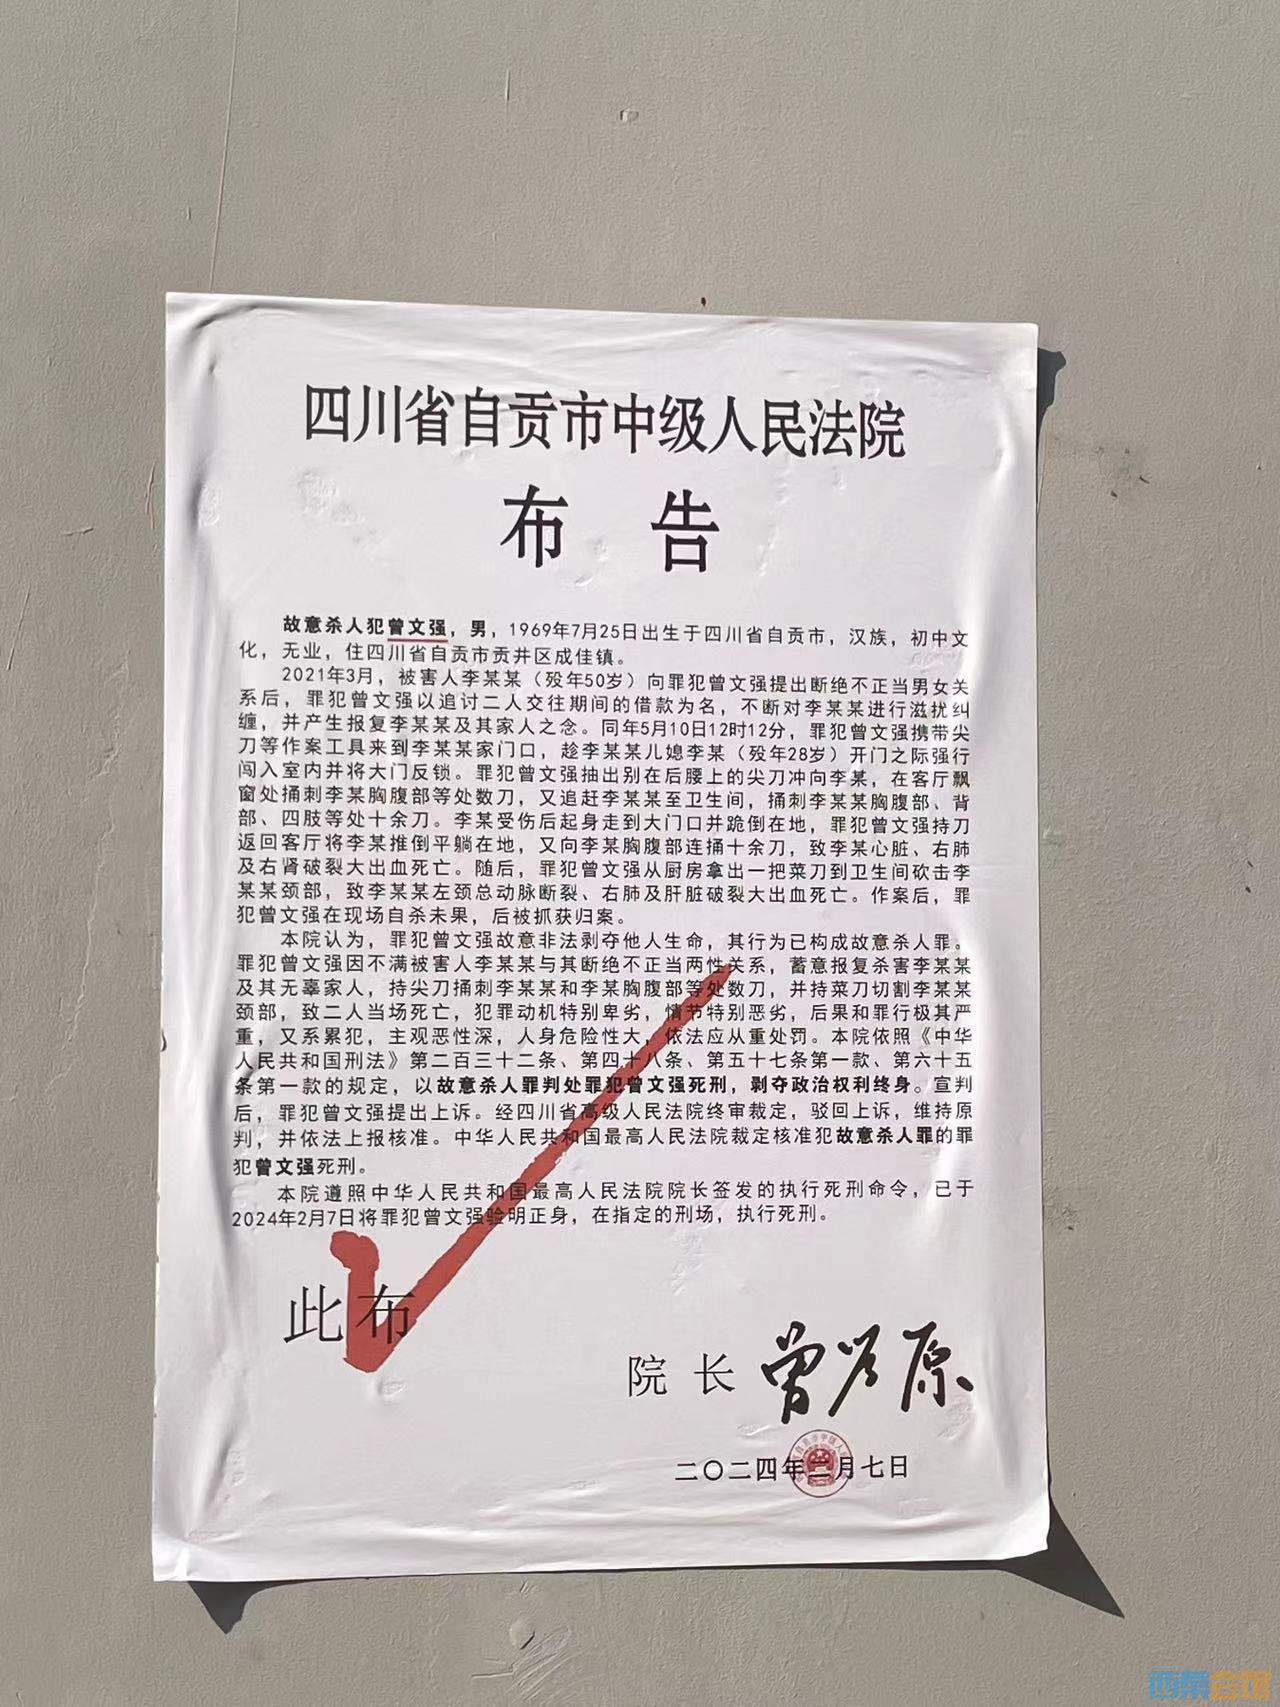 四川省自贡市中级人民法院
布 告
故意杀人犯曾文强，男，1969年7月25日出生于四川省自贡市，汉族，初中文
化，无业，住四川省自贡市贡井区成佳镇。
2021年3月，被害人李某某（殁年50岁）向罪犯曾文强提出断绝不正当男女关
系后，罪犯曾文强以追讨二人交往期间的借款为名，不断对李某某进行滋扰纠
缠，并产生报复李某某及其家人之念。同年5月10日12时12分，罪犯曾文强携带尖
刀等作案工具来到李某某家门口，趁李某某儿媳李某（殁年28岁）开门之际强行
闯入室内并将大门反锁。罪犯曾文强抽出别在后腰上的尖刀冲向李某，在客厅飘
窗处捅刺李某胸腹部等处数刀，又追赶李某某至卫生间，捅刺李某某胸腹部、背
部、四肢等处十余刀。李某受伤后起身走到大门口并跪倒在地，罪犯曾文强持刀
返回客厅将李某推倒平躺在地，又向李某胸腹部连捅十余刀，致李某心脏、右肺
及右肾破裂大出血死亡。随后，罪犯曾文强从厨房拿出一把菜刀到卫生间砍击李
某某颈部，致李某某左颈总动脉断裂、右肺及肝脏破裂大出血死亡。作案后，罪
犯曾文强在现场自杀未果，后被抓获归案。
本院认为，罪犯曾文强故意非法剥夺他人生命，其行为已构成故意杀人罪。
罪犯曾文强因不满被害人李某某与其断绝不正当两性关系，蓄意报复杀害李某某
及其无辜家人，持尖刀捅刺李某某和李某胸腹部等处数刀，并持菜刀切割李某某
颈部，致二人当场死亡，犯罪动机特别卑劣，情节特别恶劣，后果和罪行极其严
重，又系累犯，主观恶性深，人身危险性大，依法应从重处罚。本院依照《中华
人民共和国刑法》第二百三十二条、第四十八条、第五十七条第一款、第六十五
条第一款的规定，以故意杀人罪判处罪犯曾文强死刑，剥夺政治权利终身。宣判
后，罪犯曾文强提出上诉。经四川省高级人民法院终审裁定，驳回上诉，维持原
判，并依法上报核准。中华人民共和国最高人民法院裁定核准犯故意杀人罪的罪
犯曾文强死刑。
本院遵照中华人民共和国最高人民法院院长签发的执行死刑命令，已于
2024年2月7日将罪犯曾文强验明正身，在指定的刑场，执行死刑。
此布
院 长
二〇二四年二月七日